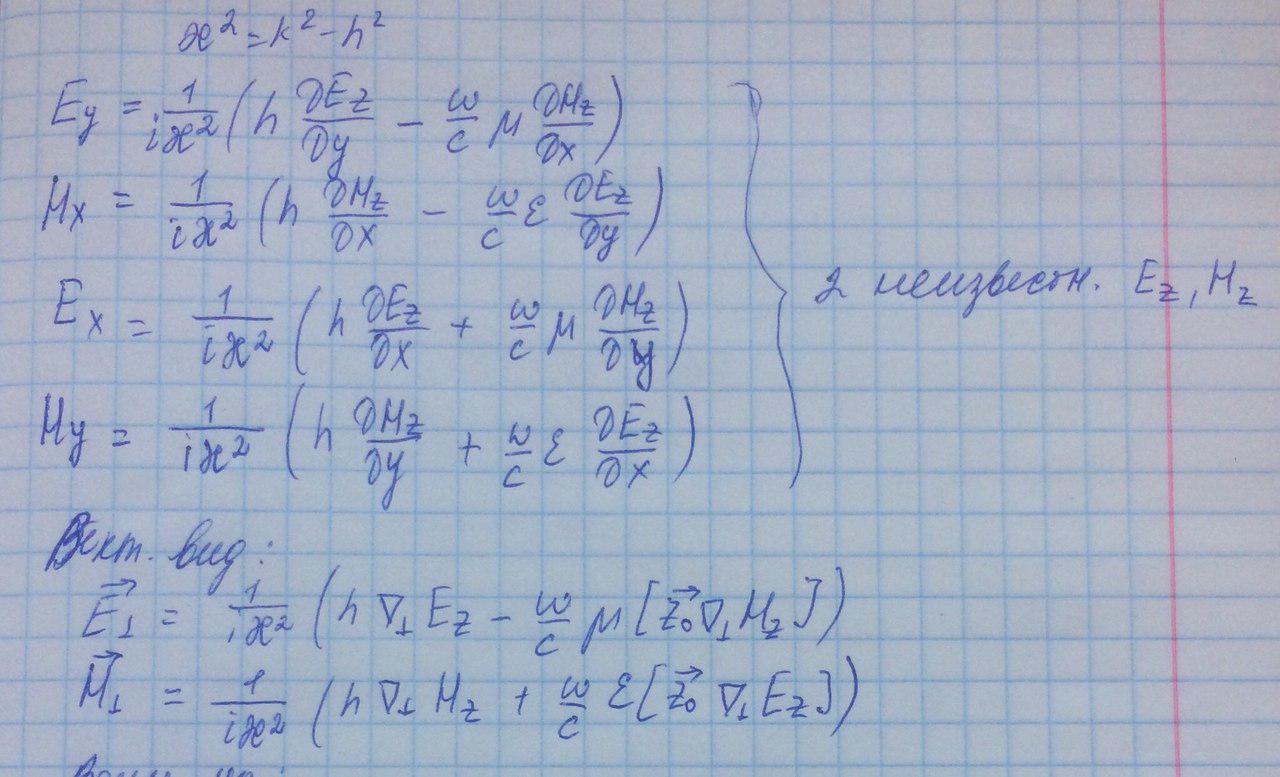 æ² = k² - h²
Ey = 1/(iæ²) (h ∂Ez/∂y - ω/c μ ∂Hz/∂x)
Hx = 1/(iæ²) (h ∂Hz/∂x - ω/c ε ∂Ez/∂y)
Ex = 1/(iæ²) (h ∂Ez/∂x + ω/c μ ∂Hz/∂y)
Hy = 1/(iæ²) (h ∂Hz/∂y + ω/c ε ∂Ez/∂x)
2 неизвестн. Ez, Hz
Вект. вид:
E⃗⊥ = 1/(iæ²) (h ∇⊥Ez - ω/c μ [z⃗₀ ∇⊥Hz])
H⃗⊥ = 1/(iæ²) (h ∇⊥Hz + ω/c ε [z⃗₀ ∇⊥Ez])